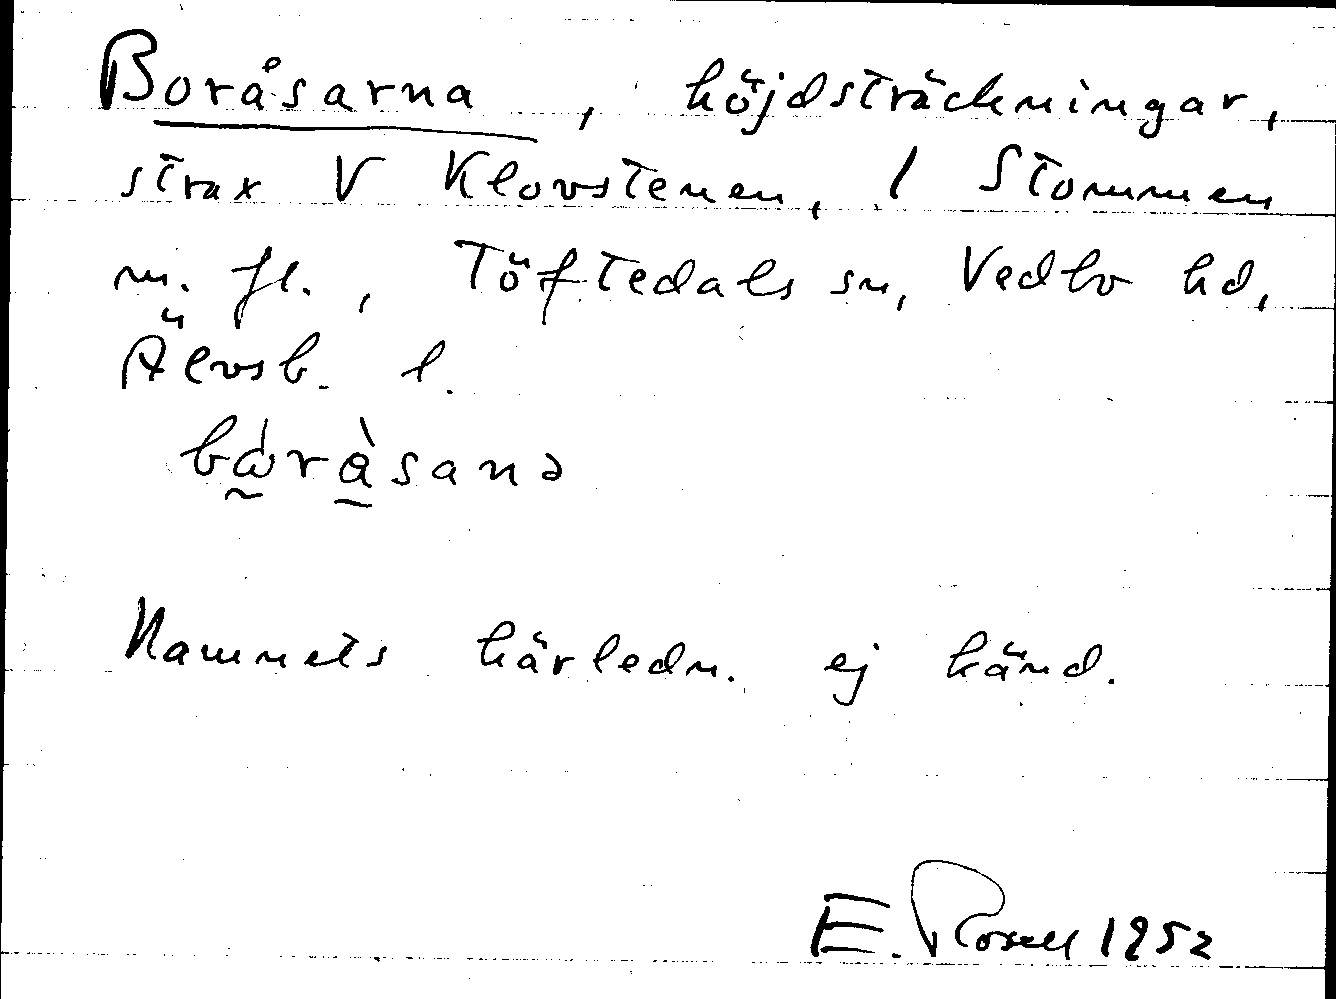 Boråsarna, höjdsträckningar,
strax V Klovstenen, / Stommen
m. fl., Töftedals sn, Vedbo hd,
Älvsb. l.
Namnets härledn. ej känd.
E. Rosell 1952